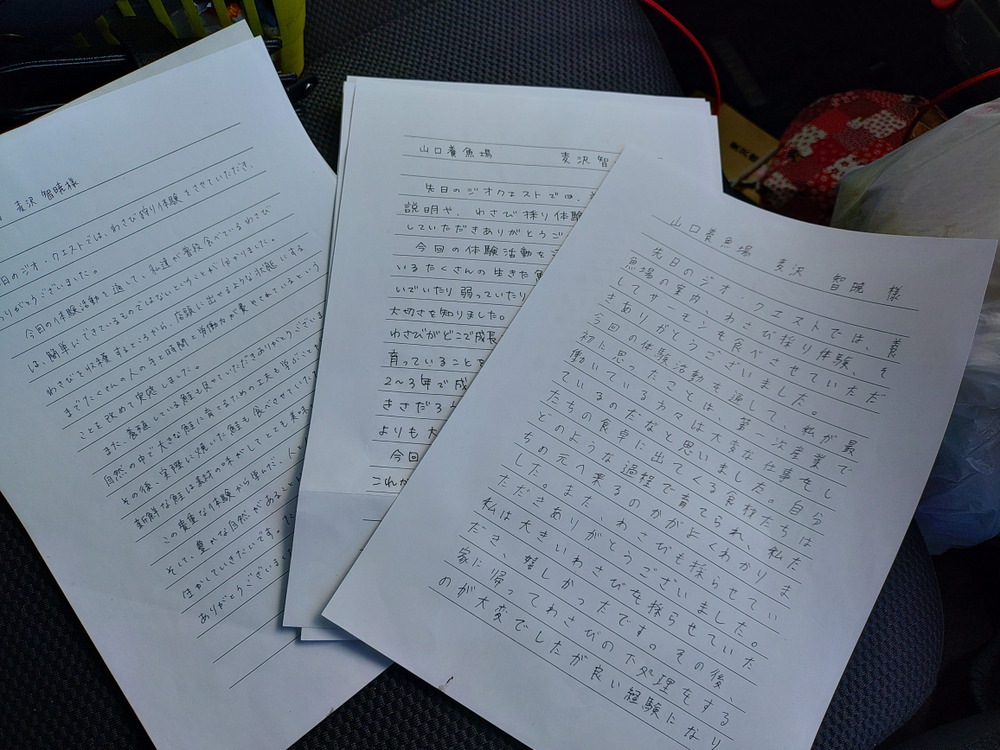 麦沢 智暁様
日のジオ・クエストでは、わさび狩り体験をさせていただき、
ありがとうございました。
今日の体験活動を通して、私達が普段食べているわさび
は、簡単にできているものではないということが分かりました。
わさびを収穫するところから、店頭に出せるような状態にする
までたくさんの人の手と時間と労働力が費やされているという
ことを改めて実感しました。
また、養殖している鮭も見せていただきありがとうございま
自然の中で大きな鮭に育てるための工夫も学ぶことが
その後、実際に焼いた鮭も食べさせていた
新鮮な鮭は素材の味がしてとても美味
この貴重な体験から学んだ、人
そして、豊かな自然があること
生かしていきたいです。
ありがとうございまし
山口養魚場 麦沢 智
先日のジオクエストでは、
説明や、わさび採り体験
していただきありがとうご
今回の体験活動を
いるたくさんの生きた魚
いでいたり弱っていたり
大切さを知りました。
わさびがどこで成長
育っていることを
2〜3年で成
きさだろ
よりも大
今回
これか
山口養魚場 麦沢 智暁 様
先日のジオ・クエストでは、養
魚場の案内、わさび採り体験、そ
してサーモンを食べさせていただ
きありがとうございました。
今回の体験活動を通して、私が最
初に思ったことは、第一次産業で
働いている方々は大変な仕事をし
ているのだなと思いました。自分
たちの食卓に出てくる食材たちは
どのような過程で育てられ、私た
ちの元へ来るのかがよくわかりま
した。また、わさびも採らせてい
ただきありがとうございました。
私は大きいわさびを採らせていた
だき、嬉しかったです。その後、
家に帰ってわさびの下処理をする
のが大変でしたが良い経験になり